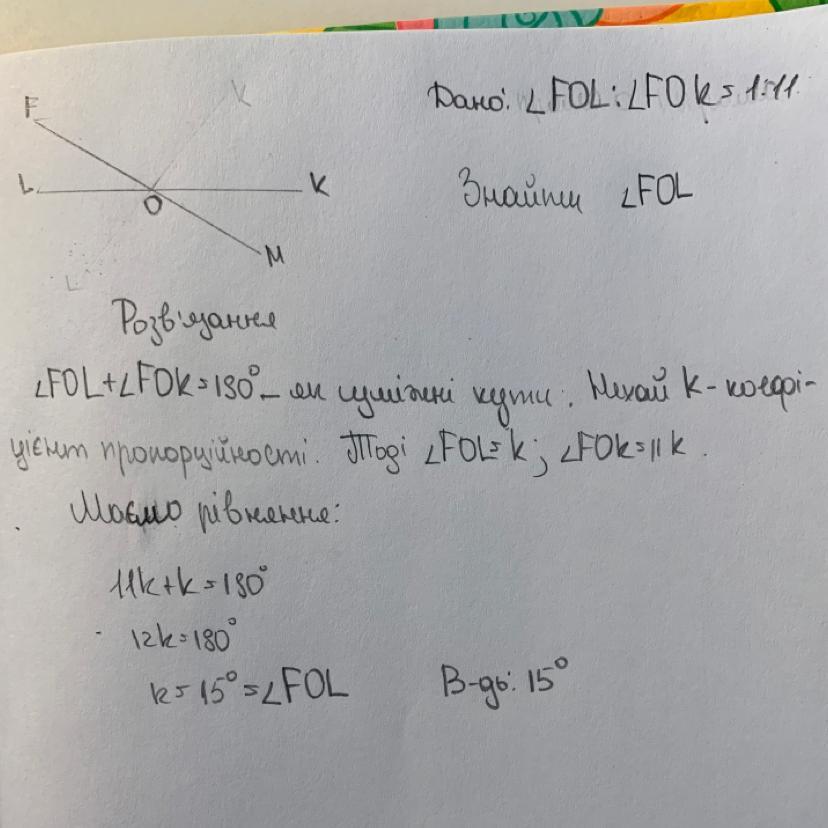 F
Дано: ∠FOL:∠FOk=1:11
L
O
K
Знайти ∠FOL
M
Розв'язання
∠FOL+∠FOk=180° – як суміжні кути. Нехай k - коефі-
цієнт пропорційності. Тоді ∠FOL=k; ∠FOk=11k.
Маємо рівняння:
11k+k=180°
12k=180°
k=15°=∠FOL
В-дь: 15°